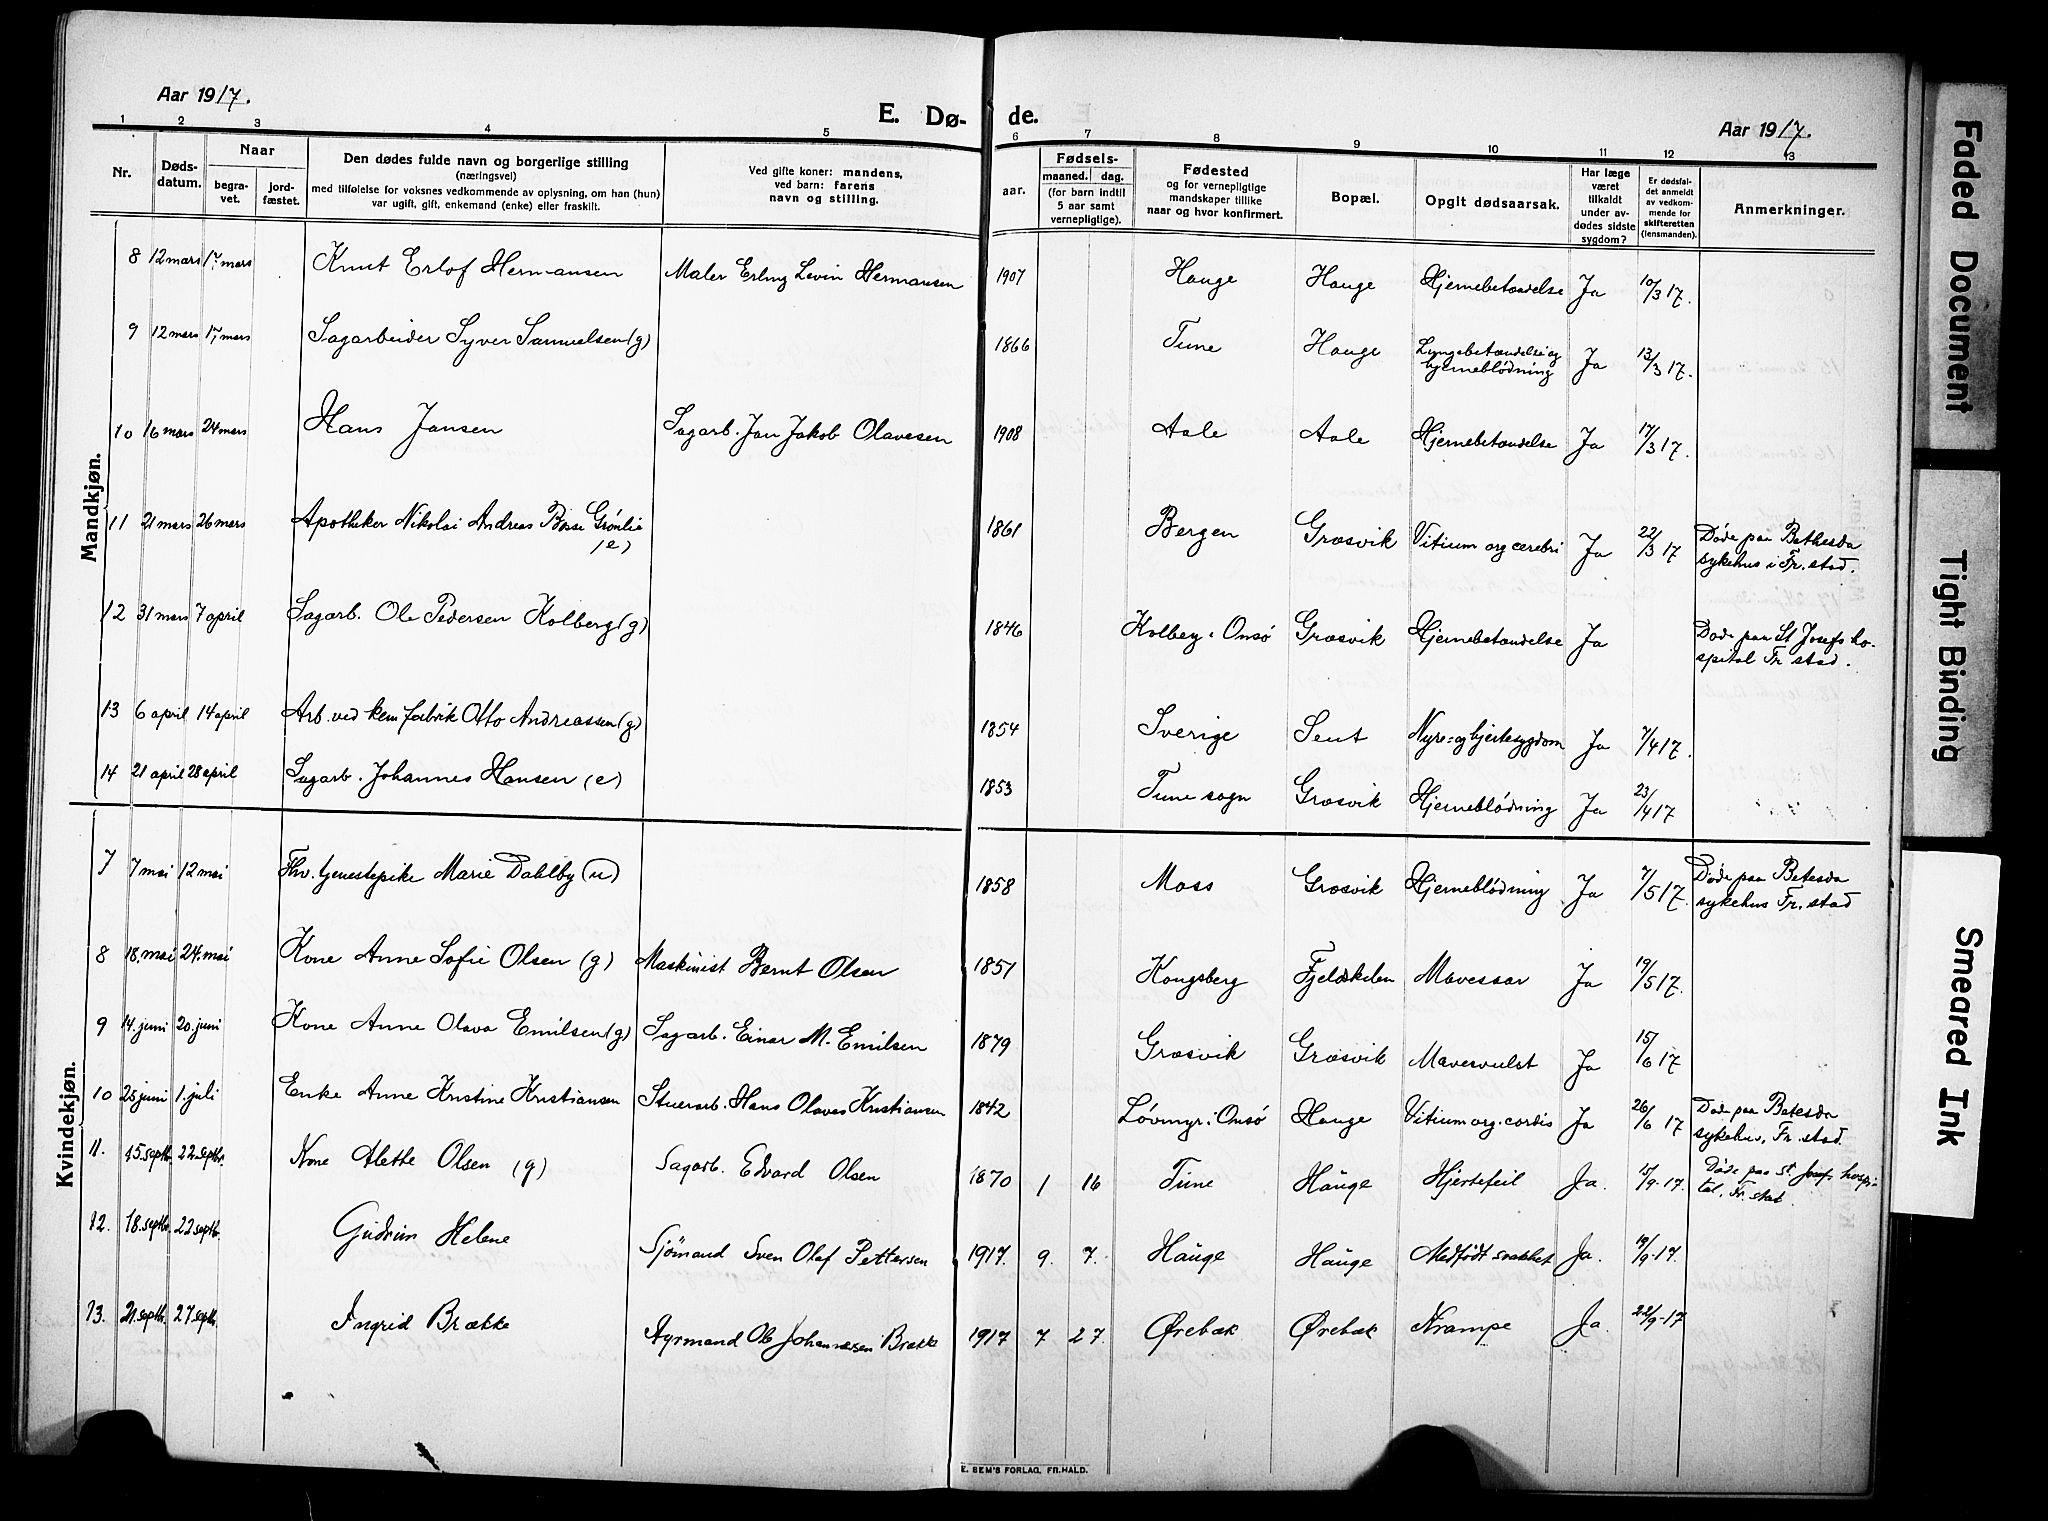 Aar 1917.
E. Dø- de.
Aar 1917.
1 2 3 4 5 6 7 8 9 10 11 12 13
Nr.
Døds-
datum.
Naar
begra-
vet.
jord-
fæstet.
Den dødes fulde navn og borgerlige stilling
(næringsvei)
med tilføielse for voksnes vedkommende av oplysning, om han (hun)
var ugift, gift, enkemand (enke) eller fraskilt.
Ved gifte koner: mandens,
ved barn: farens
navn og stilling.
aar.
Fødsels-
maaned. dag.
(for barn indtil
5 aar samt
vernepligtige).
Fødested
og for vernepligtige
mandskaper tillike
naar og hvor konfirmert.
Bopæl.
Opgit dødsaarsak.
Har læge
været
tilkaldt
under av-
dødes sidste
sygdom?
Er dødsfal-
det anmeldt
av vedkom-
mende for
skifteretten
(lensmanden).
Anmerkninger.
Mandkjøn.
8 12 mars 17 mars Knut Erlof Hermansen Maler Erling Levin Hermansen 1907 Hauge Hauge Hjernebetændelse Ja 10/3 17.
9 12 mars 17 mars Sagarbeider Syver Samuelsen (g) 1866 Tune Hauge Lungebetændelse og
hjerneblödning Ja 13/3 17.
10 16 mars 24 mars Hans Jansen Sagarb. Jan Jakob Olavesen 1908 Aale Aale Hjernebetændelse Ja 17/3 17.
11 21 mars 26 mars Apotheker Nikolai Andreas Grønlie
(e) 1861 Bergen Græsvik Vitium org cerebri Ja 22/3 17 Døde paa Bethesda
sykehus i Fr. stad.
12 31 mars 7 april Sagarb. Ole Pedersen Kolberg (g) 1846 Kolberg i Onsö Græsvik Hjernebetændelse Ja Døde paa St Josefs ho-
spital Fr stad.
13 6 april 14 april Arb. ved kem fabrik Otto Andreassen (g) 1854 Sverige Sent Nyre- og hjertesygdom Ja 7/4 17.
14 21 april 28 april Sagarb. Johannes Hansen (e) 1853 Tune sogn Græsvik Hjerneblödning Ja 23/4 17
Kvindekjøn.
7 7 mai 12 mai Fhv. tjenestepike Marie Dahlby (u) 1858 Moss Græsvik Hjerneblödning Ja 7/5 17. Døde paa Betesda
sykehus Fr. stad
8 18. mai 24. mai Kone Anne Sofie Olsen (g) Maskinist Bernt Olsen 1851 Kongsberg Fjeldskilen Mavessar Ja 19/5 17.
9 14. juni 20. juni Kone Anne Olava Emilsen (g) Sagarb. Einar M. Emilsen 1879 Græsvik Græsvik Mavesvulst Ja 15/6 17
10 25 juni 1. juli Enke Anne Kristine Kristiansen Stuerarb. Hans Olaves Kristiansen 1842 Løvmyr i Onsö Hauge Vitium org. cordis Ja 26/6 17 Døde paa Betesda
sykehus, Fr. stad.
11. 15. septbr. 22. septbr. Kone Alette Olsen (g) Sagarb. Edvard Olsen 1870 1 16 Tune Hauge Hjertefeil Ja. 15/9-17. Døde paa St. Josefs hospi-
tal, Fr. stad.
12. 18. septbr. 22 septbr. Gudrun Helene Sjömand Sven Olaf Pettersen 1917. 9. 7. Hauge Hauge Medfödt svakhet Ja. 19/9-17.
13. 21. septbr. 27. septbr. Ingrid Brække Styrmand Ole Johannesen Brække 1917 7 27. Ørebæk Ørebæk Krampe Ja. 22/9-17
E. SEM'S FORLAG, FR.HALD.
Faded Document
Tight Binding
Smeared Ink